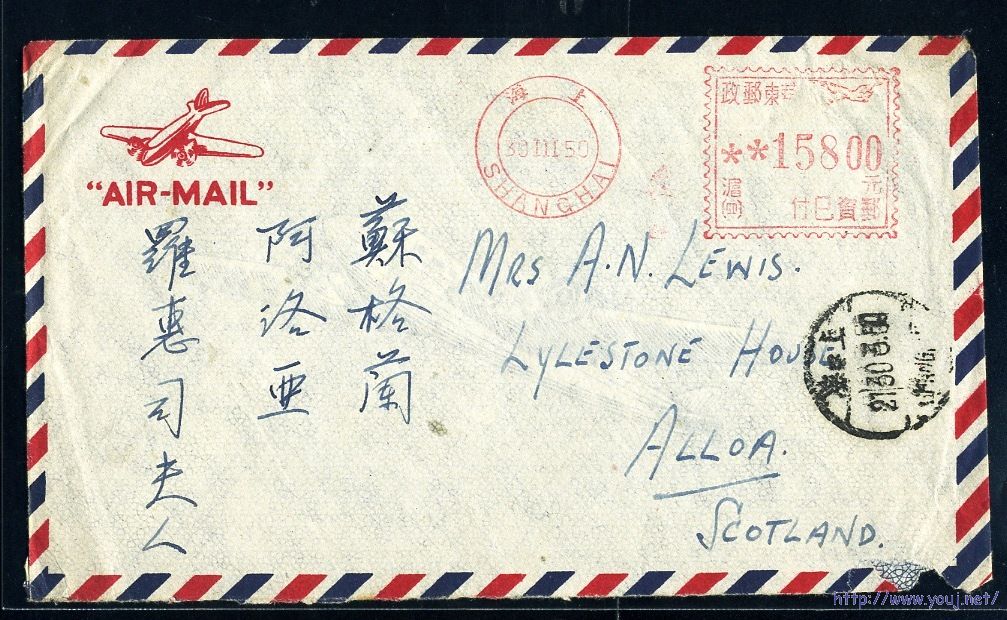 "AIR-MAIL"
上海
30 III 50
SHANGHAI
華東郵政
**15800
元
滬
郵資已付
蘇格蘭
阿洛亞
羅惠司夫人
MRS A.N. LEWIS.
LYLESTONE HOUSE
ALLOA.
SCOTLAND.
上海
http://www.youj.net/